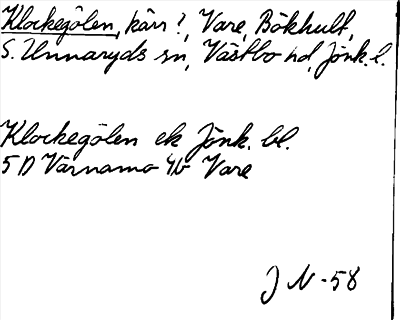 Klockegölen, kärr?, Vare, Bökhult,
S. Unnaryds sn, Västbo hd, Jönk. l.
Klockegölen ek Jönk. bl.
5 D Värnamo 4b Vare
J N -58